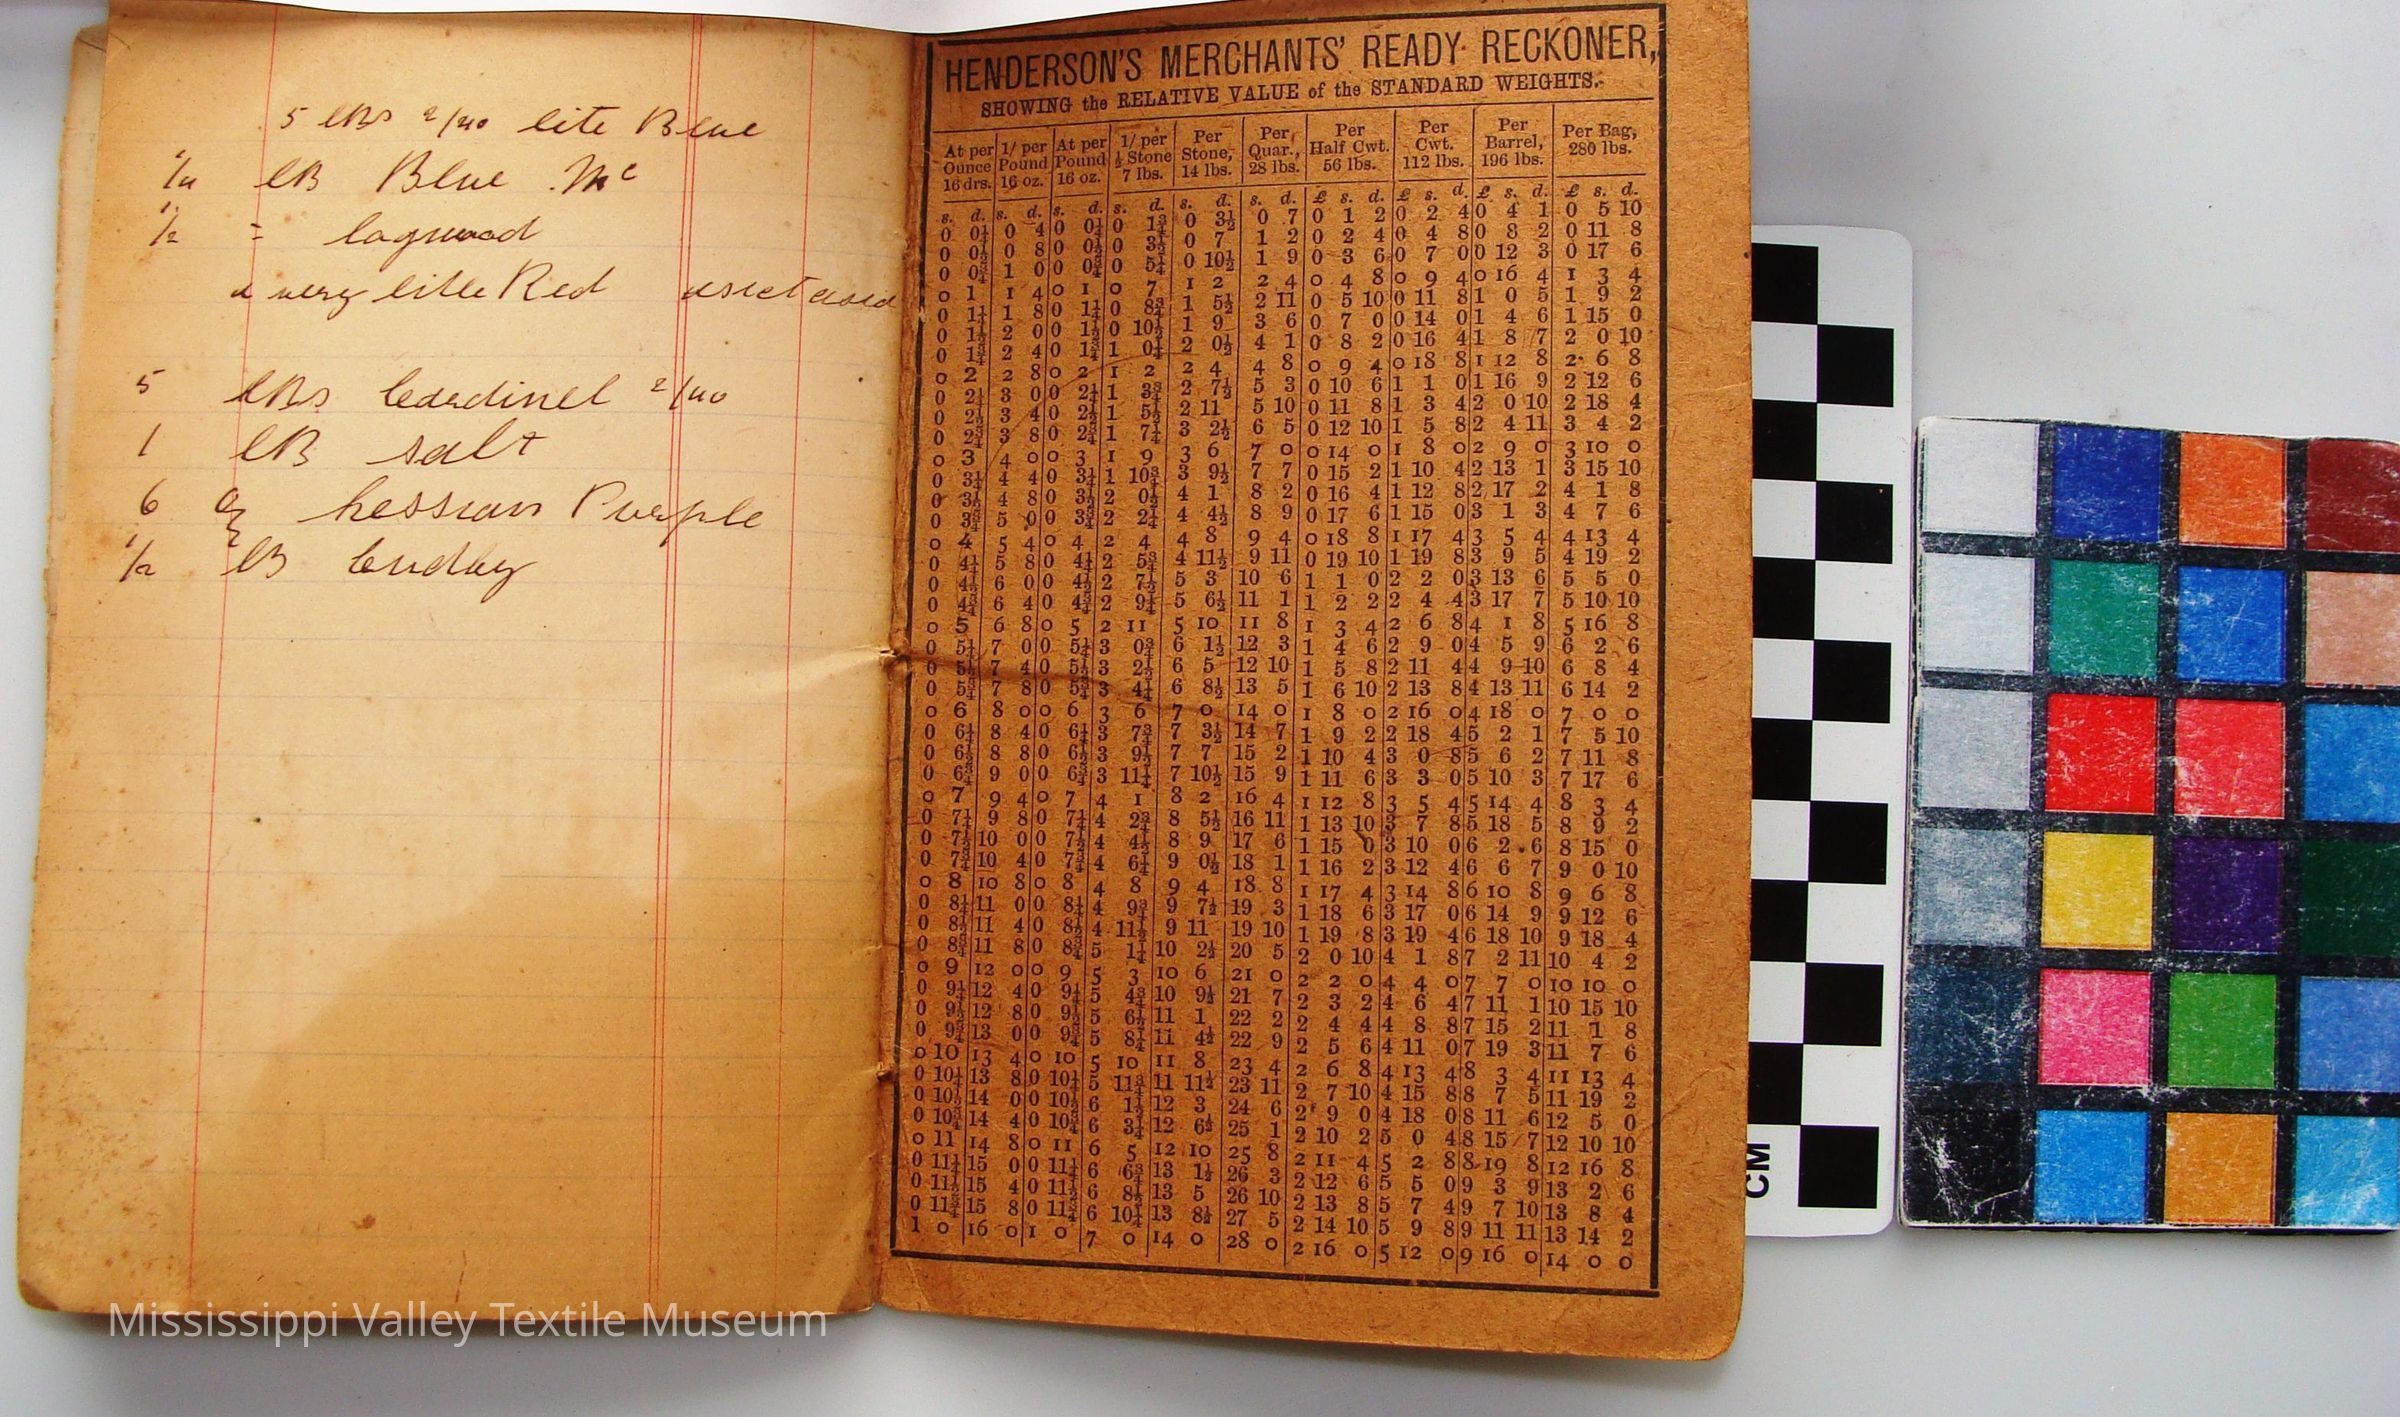 5 lBs 2/40 lite Blue
1/4 lB Blue Mc
1/2 = logwood
a very litle Red
5 lBs Cardinel 2/40
1 lB salt
6 oz hessian Purple
1/2 lB Cudbey
HENDERSON'S MERCHANTS' READY RECKONER,
SHOWING the RELATIVE VALUE of the STANDARD WEIGHTS.
At per Ounce 16 drs. 1/ per Pound 16 oz. At per Pound 16 oz. 1/ per ½ Stone 7 lbs. Per Stone, 14 lbs. Per Quar., 28 lbs. Per Half Cwt. 56 lbs. Per Cwt. 112 lbs. Per Barrel, 196 lbs. Per Bag, 280 lbs.
s. d. s. d. s. d. s. d. s. d. s. d. £ s. d. £ s. d. £ s. d. £ s. d.
0 0¼ 0 4 0 0¼ 0 1¾ 0 3½ 0 7 0 1 2 0 2 4 0 4 1 0 5 10
0 0½ 0 8 0 0½ 0 3½ 0 7 1 2 0 2 4 0 4 8 0 8 2 0 11 8
0 0¾ 1 0 0 0¾ 0 5¼ 0 10½ 1 9 0 3 6 0 7 0 0 12 3 0 17 6
0 1 1 4 0 1 0 7 1 2 2 4 0 4 8 0 9 4 0 16 4 1 3 4
0 1¼ 1 8 0 1¼ 0 8¾ 1 5½ 2 11 0 5 10 0 11 8 1 0 5 1 9 2
0 1½ 2 0 0 1½ 0 10½ 1 9 3 6 0 7 0 0 14 0 1 4 6 1 15 0
0 1¾ 2 4 0 1¾ 1 0¼ 2 0½ 4 1 0 8 2 0 16 4 1 8 7 2 0 10
0 2 2 8 0 2 1 2 2 4 4 8 0 9 4 0 18 8 1 12 8 2 6 8
0 2¼ 3 0 0 2¼ 1 3¾ 2 7½ 5 3 0 10 6 1 1 0 1 16 9 2 12 6
0 2½ 3 4 0 2½ 1 5½ 2 11 5 10 0 11 8 1 3 4 2 0 10 2 18 4
0 2¾ 3 8 0 2¾ 1 7¼ 3 2½ 6 5 0 12 10 1 5 8 2 4 11 3 4 2
0 3 4 0 0 3 1 9 3 6 7 0 0 14 0 1 8 0 2 9 0 3 10 0
0 3¼ 4 4 0 3¼ 1 10¾ 3 9½ 7 7 0 15 2 1 10 4 2 13 1 3 15 10
0 3½ 4 8 0 3½ 2 0½ 4 1 8 2 0 16 4 1 12 8 2 17 2 4 1 8
0 3¾ 5 0 0 3¾ 2 2¼ 4 4½ 8 9 0 17 6 1 15 0 3 1 3 4 7 6
0 4 5 4 0 4 2 4 4 8 9 4 0 18 8 1 17 4 3 5 4 4 13 4
0 4¼ 5 8 0 4¼ 2 5¾ 4 11½ 9 11 0 19 10 1 19 8 3 9 5 4 19 2
0 4½ 6 0 0 4½ 2 7½ 5 3 10 6 1 1 0 2 2 0 3 13 6 5 5 0
0 4¾ 6 4 0 4¾ 2 9¼ 5 6½ 11 1 1 2 2 2 4 4 3 17 7 5 10 10
0 5 6 8 0 5 2 11 5 10 11 8 1 3 4 2 6 8 4 1 8 5 16 8
0 5¼ 7 0 0 5¼ 3 0¾ 6 1½ 12 3 1 4 6 2 9 0 4 5 9 6 2 6
0 5½ 7 4 0 5½ 3 2½ 6 5 12 10 1 5 8 2 11 4 4 9 10 6 8 4
0 5¾ 7 8 0 5¾ 3 4¼ 6 8½ 13 5 1 6 10 2 13 8 4 13 11 6 14 2
0 6 8 0 0 6 3 6 7 0 14 0 1 8 0 2 16 0 4 18 0 7 0 0
0 6¼ 8 4 0 6¼ 3 7¾ 7 3½ 14 7 1 9 2 2 18 4 5 2 1 7 5 10
0 6½ 8 8 0 6½ 3 9½ 7 7 15 2 1 10 4 3 0 8 5 6 2 7 11 8
0 6¾ 9 0 0 6¾ 3 11¼ 7 10½ 15 9 1 11 6 3 3 0 5 10 3 7 17 6
0 7 9 4 0 7 4 1 8 2 16 4 1 12 8 3 5 4 5 14 4 8 3 4
0 7¼ 9 8 0 7¼ 4 2¾ 8 5½ 16 11 1 13 10 3 7 8 5 18 5 8 9 2
0 7½ 10 0 0 7½ 4 4½ 8 9 17 6 1 15 0 3 10 0 6 2 6 8 15 0
0 7¾ 10 4 0 7¾ 4 6¼ 9 0½ 18 1 1 16 2 3 12 4 6 6 7 9 0 10
0 8 10 8 0 8 4 8 9 4 18 8 1 17 4 3 14 8 6 10 8 9 6 8
0 8¼ 11 0 0 8¼ 4 9¾ 9 7½ 19 3 1 18 6 3 17 0 6 14 9 9 12 6
0 8½ 11 4 0 8½ 4 11½ 9 11 19 10 1 19 8 3 19 4 6 18 10 9 18 4
0 8¾ 11 8 0 8¾ 5 1¼ 10 2½ 20 5 2 0 10 4 1 8 7 2 11 10 4 2
0 9 12 0 0 9 5 3 10 6 21 0 2 2 0 4 4 0 7 7 0 10 10 0
0 9¼ 12 4 0 9¼ 5 4¾ 10 9½ 21 7 2 3 2 4 6 4 7 11 1 10 15 10
0 9½ 12 8 0 9½ 5 6½ 11 1 22 2 2 4 4 4 8 8 7 15 2 11 1 8
0 9¾ 13 0 0 9¾ 5 8¼ 11 4½ 22 9 2 5 6 4 11 0 7 19 3 11 7 6
0 10 13 4 0 10 5 10 11 8 23 4 2 6 8 4 13 4 8 3 4 11 13 4
0 10¼ 13 8 0 10¼ 5 11¾ 11 11½ 23 11 2 7 10 4 15 8 8 7 5 11 19 2
0 10½ 14 0 0 10½ 6 1½ 12 3 24 6 2 9 0 4 18 0 8 11 6 12 5 0
0 10¾ 14 4 0 10¾ 6 3¼ 12 6½ 25 1 2 10 2 5 0 4 8 15 7 12 10 10
0 11 14 8 0 11 6 5 12 10 25 8 2 11 4 5 2 8 8 19 8 12 16 8
0 11¼ 15 0 0 11¼ 6 6¾ 13 1½ 26 3 2 12 6 5 5 0 9 3 9 13 2 6
0 11½ 15 4 0 11½ 6 8½ 13 5 26 10 2 13 8 5 7 4 9 7 10 13 8 4
0 11¾ 15 8 0 11¾ 6 10¼ 13 8½ 27 5 2 14 10 5 9 8 9 11 11 13 14 2
1 0 16 0 1 0 7 0 14 0 28 0 2 16 0 5 12 0 9 16 0 14 0 0
CM
Mississippi Valley Textile Museum